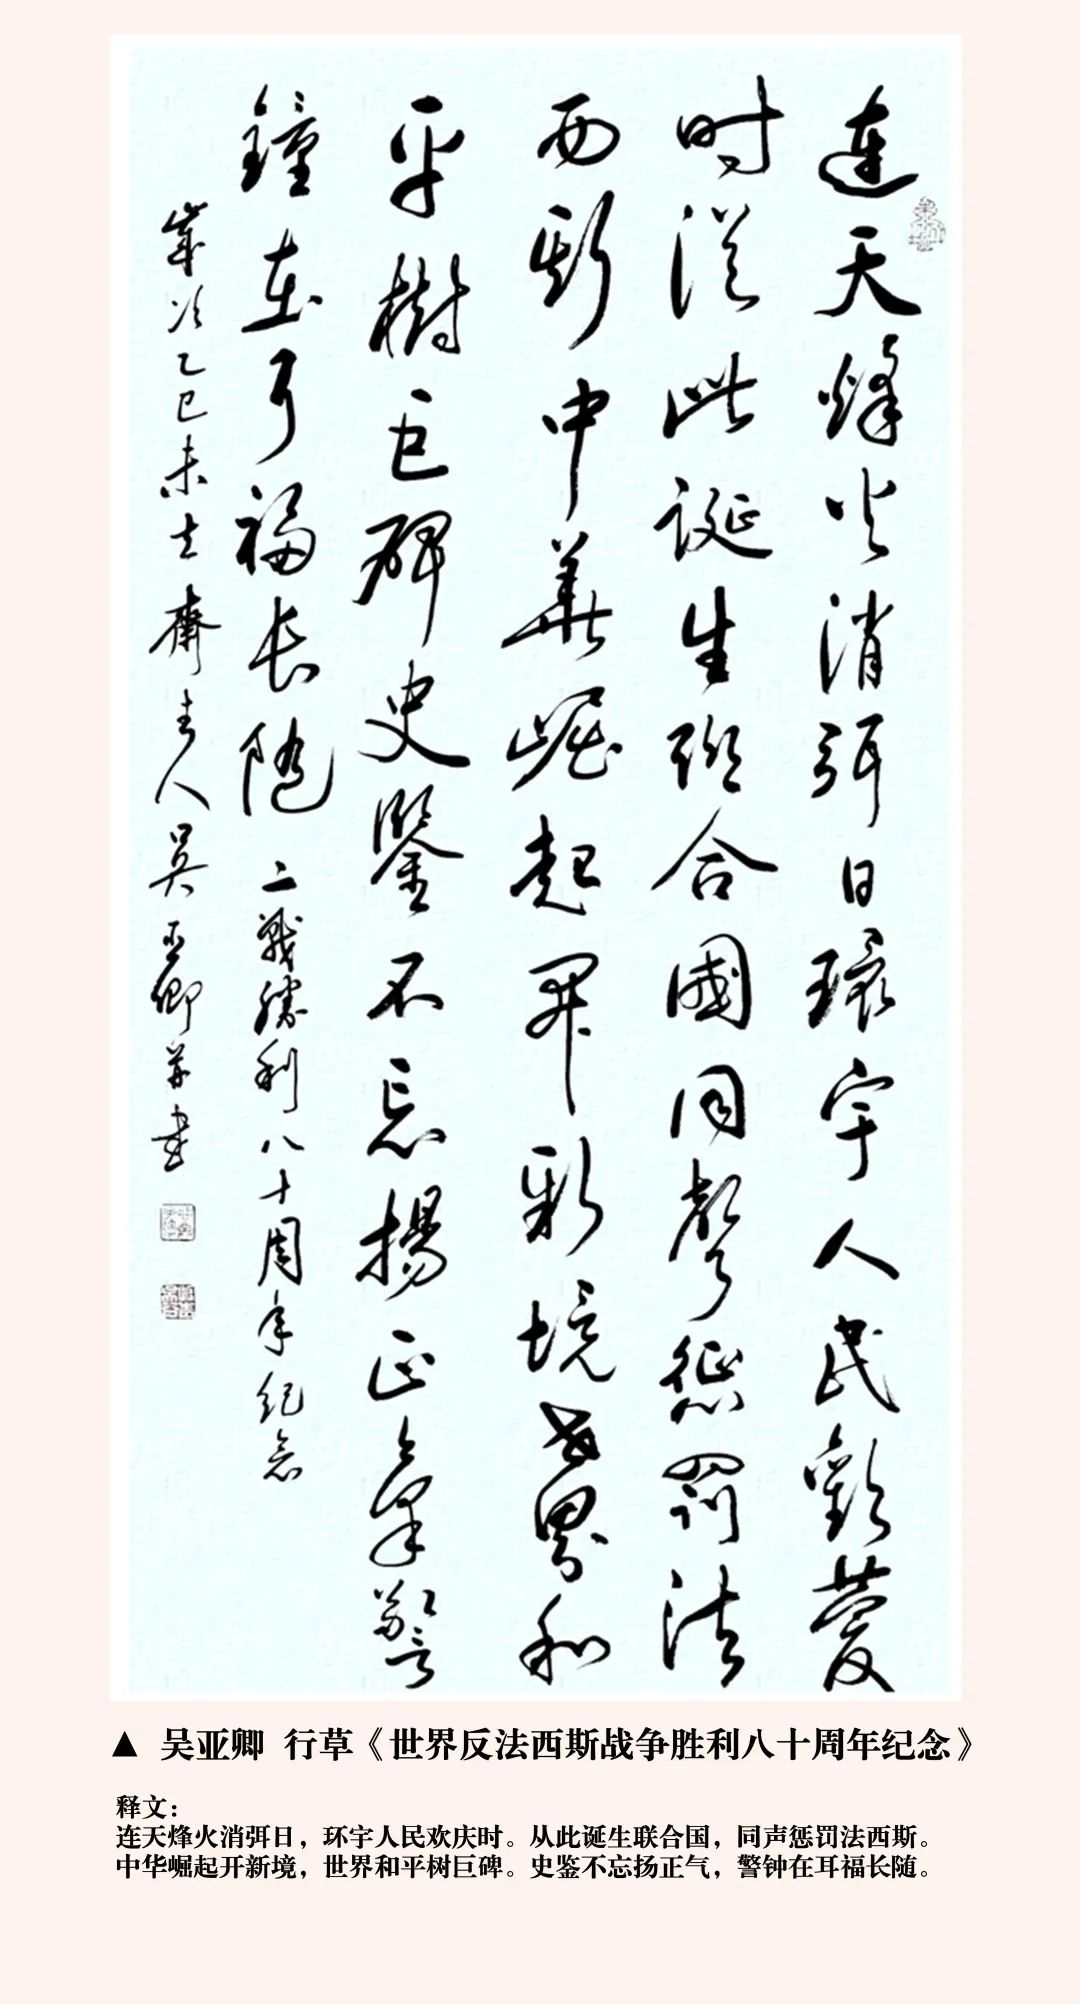 連天烽火消弭日環宇人民歡慶
时從此誕生联合國同聲惩罰法
西斯中華崛起開新境世界和
平樹巨碑史鑒不忘揚正氣警
鐘在耳福長隨 二戰勝利八十周年纪念
歲次乙巳未士齋主人吴亚卿并书
▲ 吴亚卿 行草《世界反法西斯战争胜利八十周年纪念》
释文：
连天烽火消弭日，环宇人民欢庆时。从此诞生联合国，同声惩罚法西斯。
中华崛起开新境，世界和平树巨碑。史鉴不忘扬正气，警钟在耳福长随。